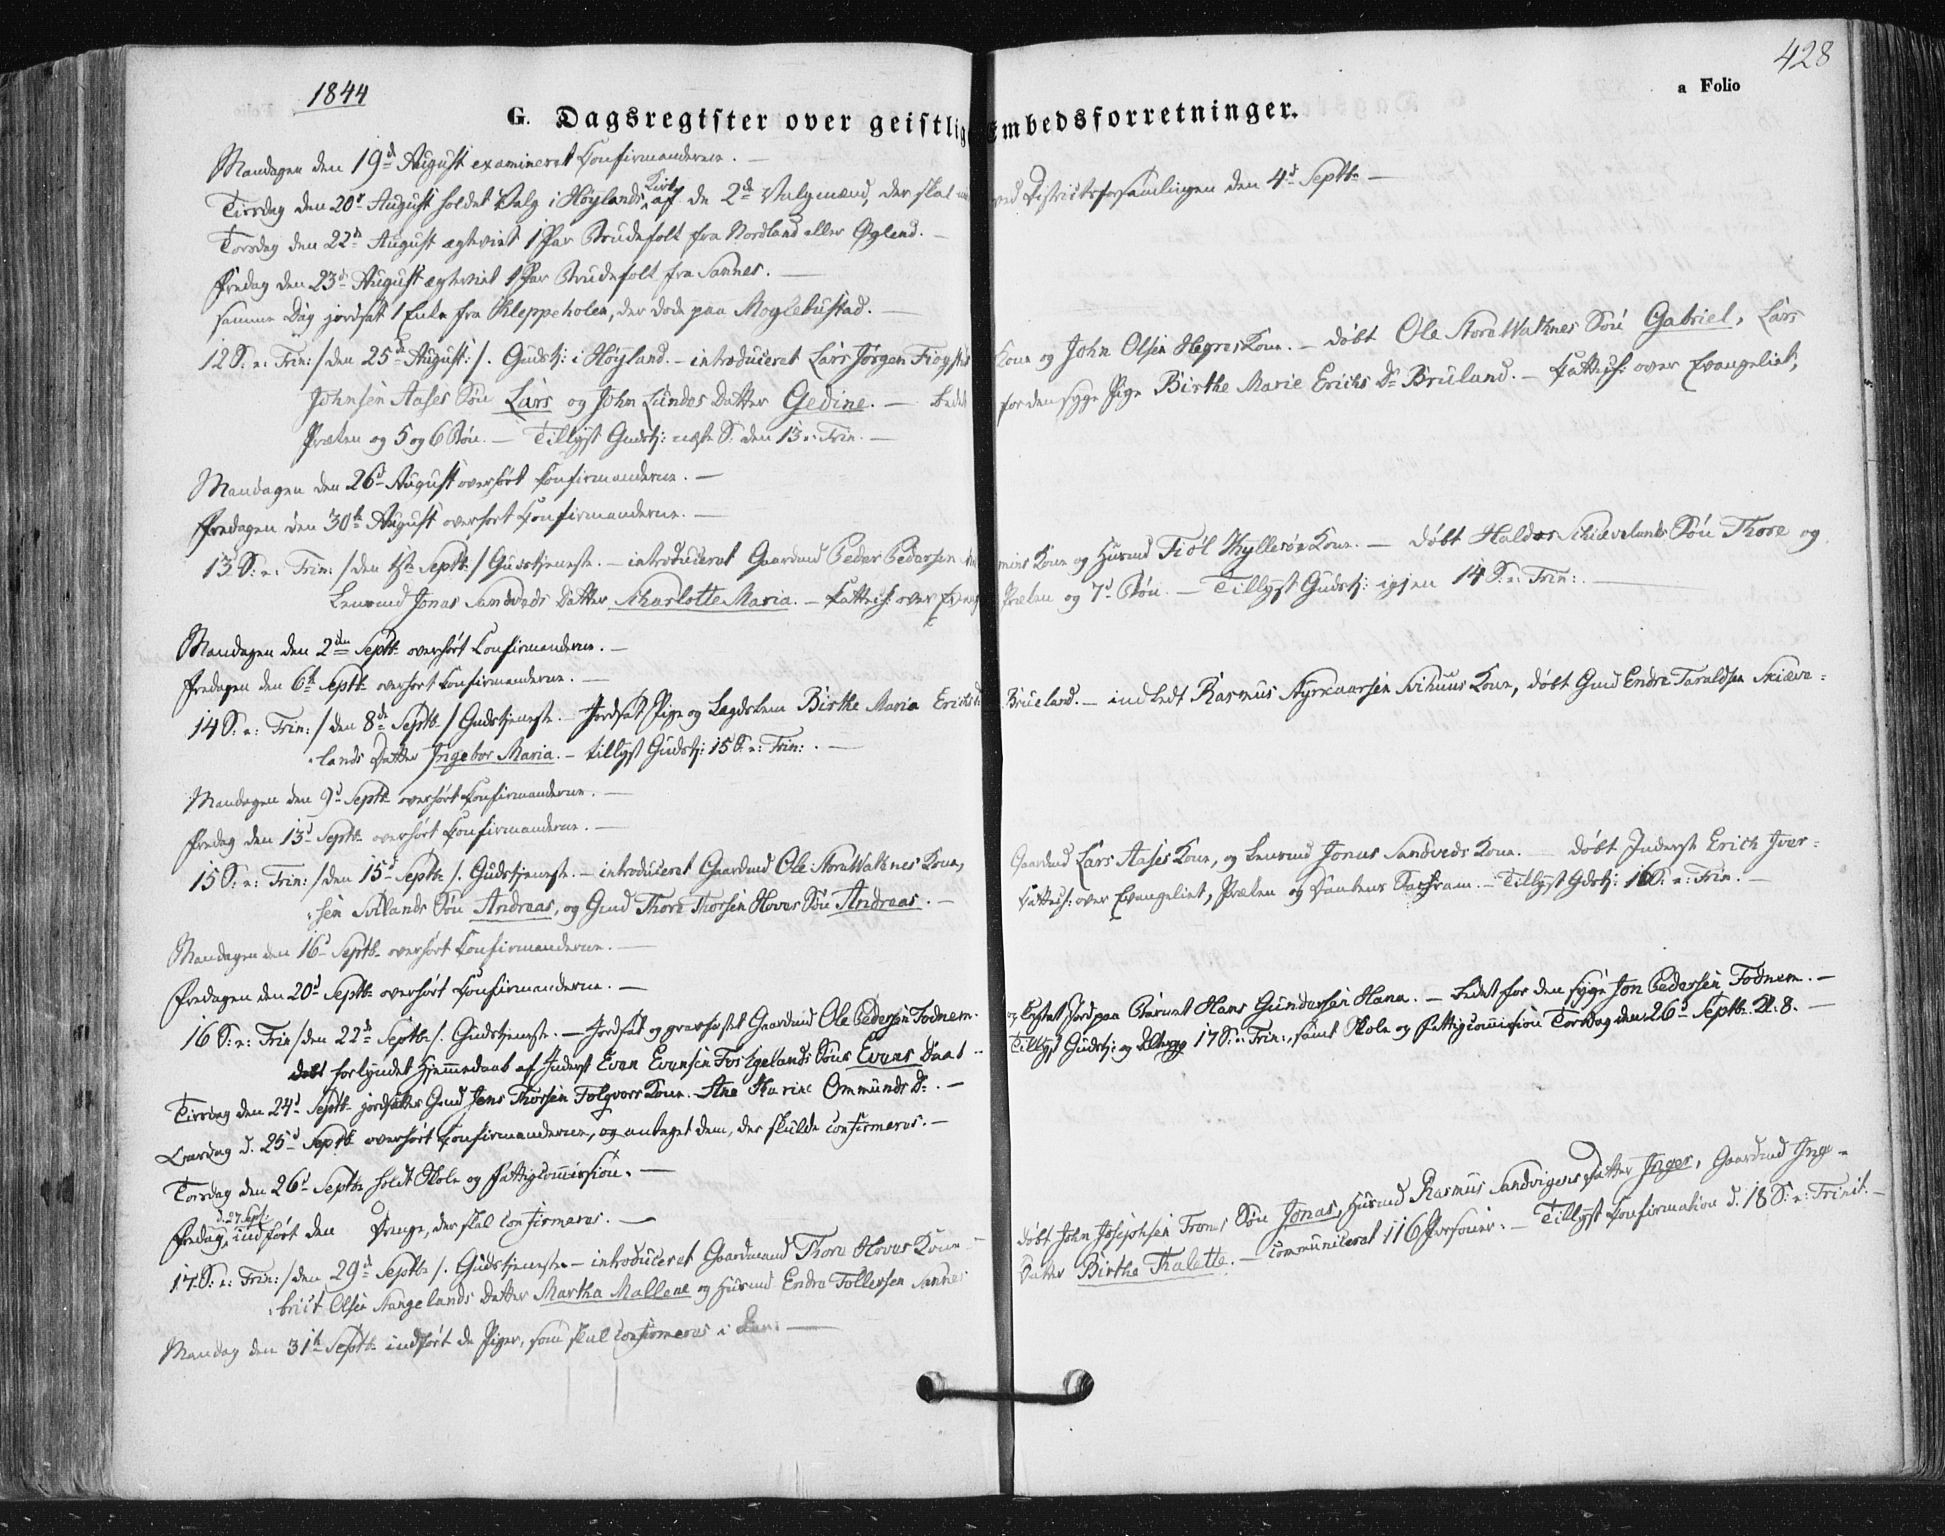 1844
428
a Folio
G. Dagsregister over geistlige Embedsforretninger.
Mandagen den 19d August examineret Confirmanderne. —
Tirsdag den 20d August holdet Valg i Høylands Kirke af de 2de Valgmænd, der skal ved Districtsforsamlingen den 4d Septbr —
Torsdag den 22d August egteviet 1 Par Brudefolk fra Nordland eller Oglend. —
Fredag den 23d August egteviet 1 Par Brudefolk fra Sannes. —
samme Dag jordsat 1 Enke fra Kleppeholen, der døde paa Moglebustad. —
12 S: e: Trin: /: den 25d August: /. Gudstj: i Høyland. — introduceret Lars Jørgen Kone og John Olsen Hegres Kone. — døbt Ole Store Watnes Søn Gabriel, Lars
Johnsen Aases Søn Lars og John Lundes Datter Gedine. — bedet for den syge Pige Birthe Marie Erichs Dr Brueland. — Kattech: over Evangeliet,
Præken og 5 og 6 Bøn. — Tillyst Gudstj: næste S: den 13 e: Trin. —
Mandagen den 26d August overhørt Confirmanderne. —
Fredagen den 30te August overhørt Confirmanderne. —
13 S: e: Trin: /: den 1ste Septbr /: Gudstjeneste. — introduceret Gaardmd Peder Pedersen Kone og Husmd Kone. — døbt Haldor Schiævelands Søn Thore og
Lensmd Jonas Sandveds Datter Scharlotte Maria. — Kattech: over Præken og 7d Bøn. — Tillyst Gudstj: igjen 14 S: e: Trin: —
Mandagen den 2den Septbr overhørt Confirmanderne. —
Fredagen den 6te Septbr overhørt Confirmanderne. —
14 S: e: Trin: /: den 8de Septbr /: Gudstjeneste. — Jordsat Pige og Lægdslem Birthe Maria Brueland. — indledt Rasmus Styrkaarsen Svihuus Kone, døbt Gmd Endre Taraldsen Skiæve-
lands Datter Ingebor Maria. — tillyst Gudstj: 15 S: e: Trin: . —
Mandagen den 9d Septbr overhørt Confirmanderne. —
Fredag den 13d Septbr overhørt Confirmanderne. —
15 S: e: Trin: /: den 15d Septbr /. Gudstjeneste. — introduceret Gaardmd Ole Store Watnes Kone, Gaardmd Lars Aases Kone, og Lensmd Jonas Sandveds Kone. — døbt Inderst Erich Iver-
sen Svilands Søn Andreas, og Gmd Thore Thorsen Hoves Søn Andreas. — Kattech: over Evangeliet, Præken og Daabens Sachram. — Tillyst Gdstj: 16 S: e: Trin. —
Mandagen den 16d Septbr overhørt Confirmanderne. —
Fredagen den 20d Septbr overhørt Confirmanderne. —
16 S: e: Trin /: den 22d Septbr /. Gudstjeneste. — Jordsat og gravfæstet Gaardmd Ole Pedersen Todnem. og kastet Jord paa Barnet Hans Gundersen Hana. — bedet for den syge Jon Pedersen Todnem. —
døbt forlyndet Hjemmedaab af Inderst Even Evensen Fos Egelands Søns Evens Daab — Tillyst Gudstj: og Altergg 17 S: e: Trin:, samt Skole og Fattigcommision Torsdag den 26d Septbr Kl: 8. —
Tirsdag den 24d Septbr jordsattes Gmd Jens Thorsen Folgvors Kone Ane Karine Ommunds Dr. —
Løverdag d. 25d Septbr overhørt Confirmanderne, og antaget dem, der skulde confirmeres. —
Torsdag den 26d Septbr holdt Skole og Fattigcommission. —
Fredag d. 27. Sept: indført den Drenge, der skal confirmeres. —
17. S: e: Trin: /: den 29d Septbr /. Gudstjeneste. — introduceret Gaardmand Thore Hoves Kone — døbt John Josephsen Trones Søn Jonas, Husmd Rasmus Sandvigens Datter Inger, Gaardmd Inge-
brict Olsen Stangelands Datter Martha Mallene og Husmd Endre Tollersen Sannes Datter Birthe Thalette. — communiceret 116 Personer. — Tillyst Confirmation d. 18 S: e: Trinit. —
Mandag den 31te Septbr indført de Piger, som skal confirmeres i —